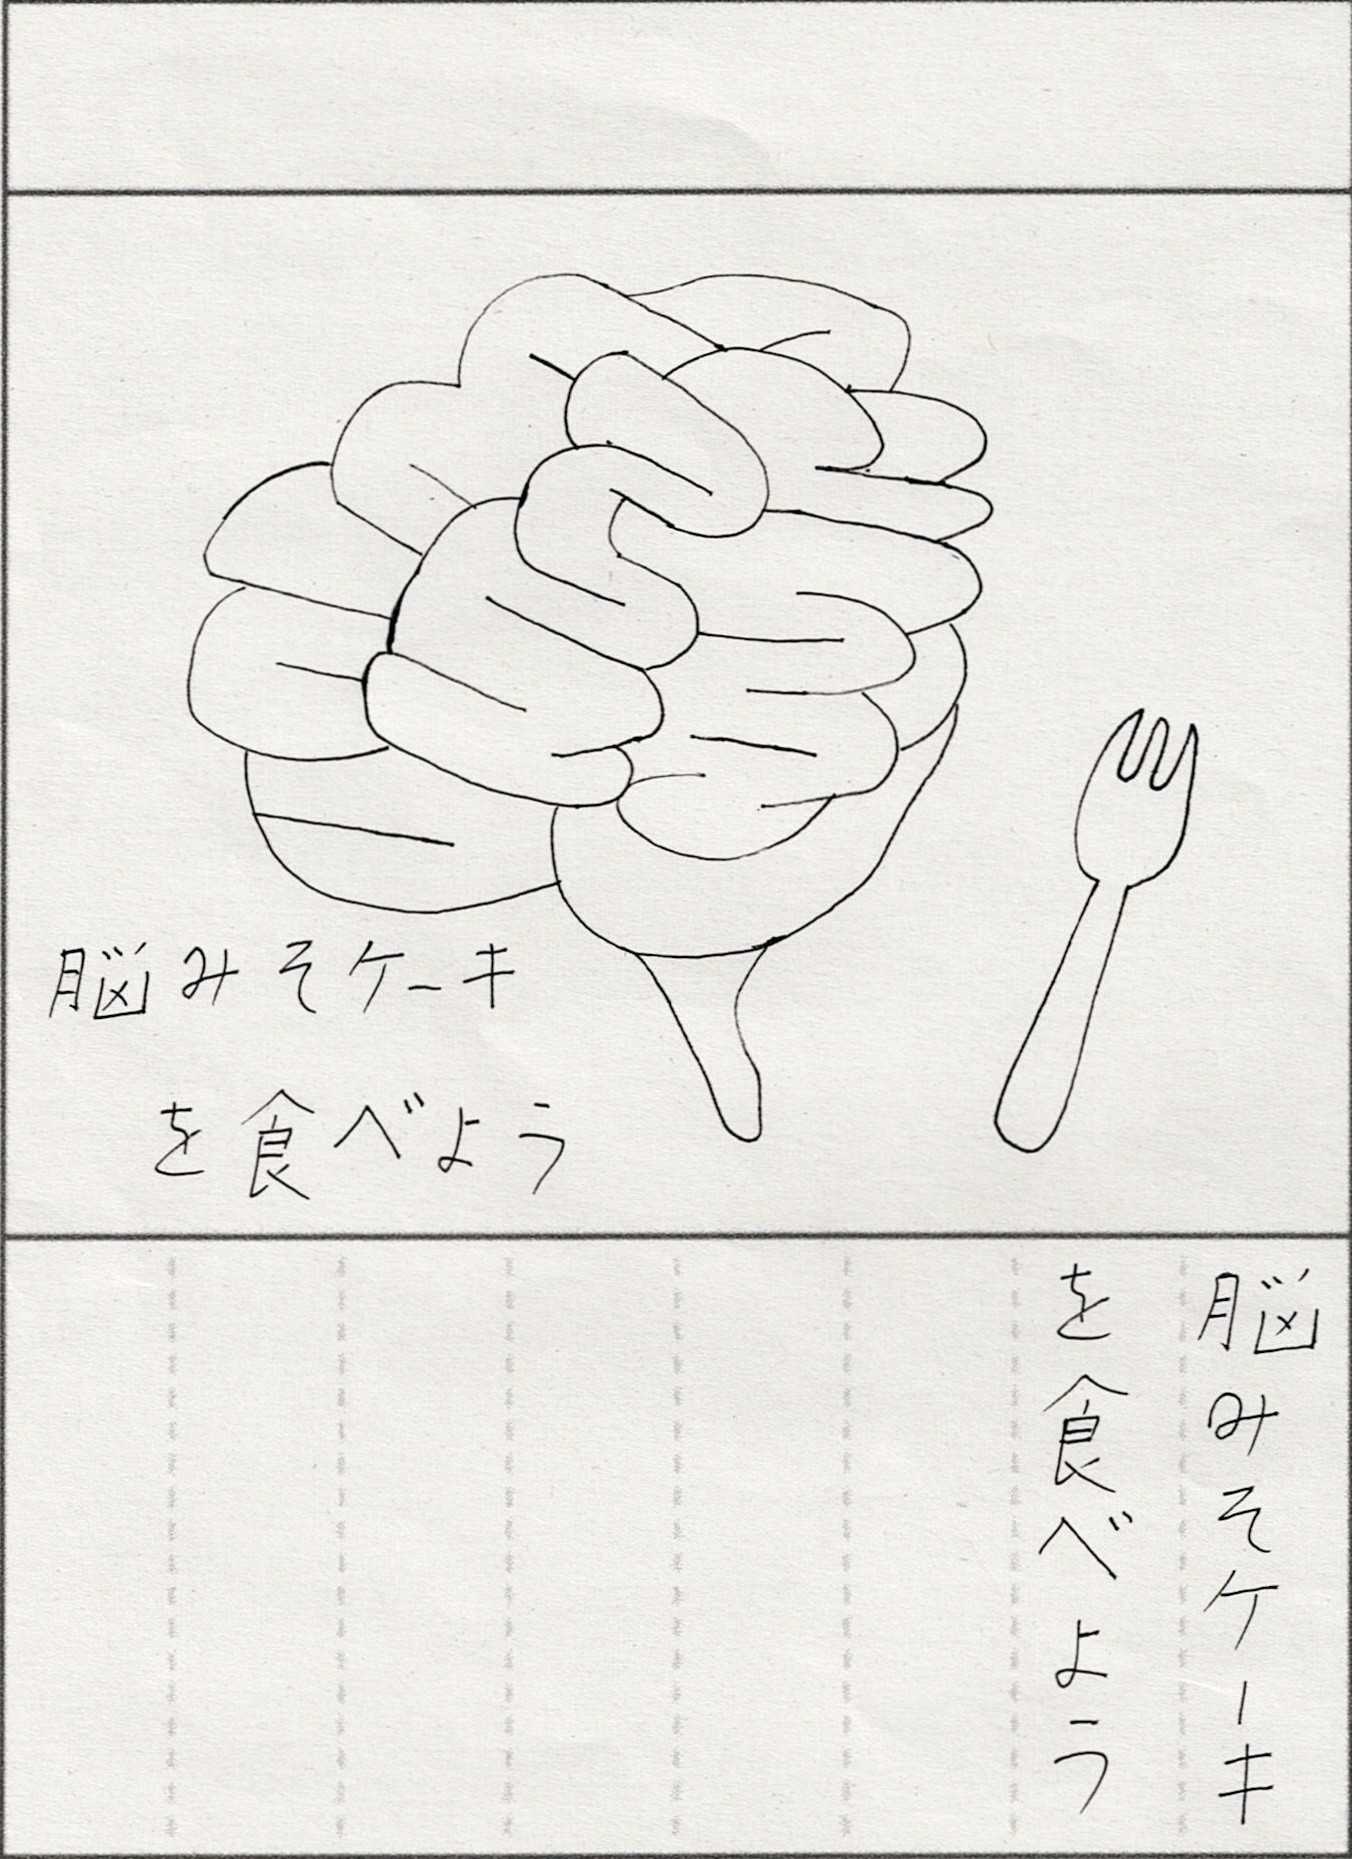 脳みそケーキ
を食べよう
脳みそケーキ
を食べよう